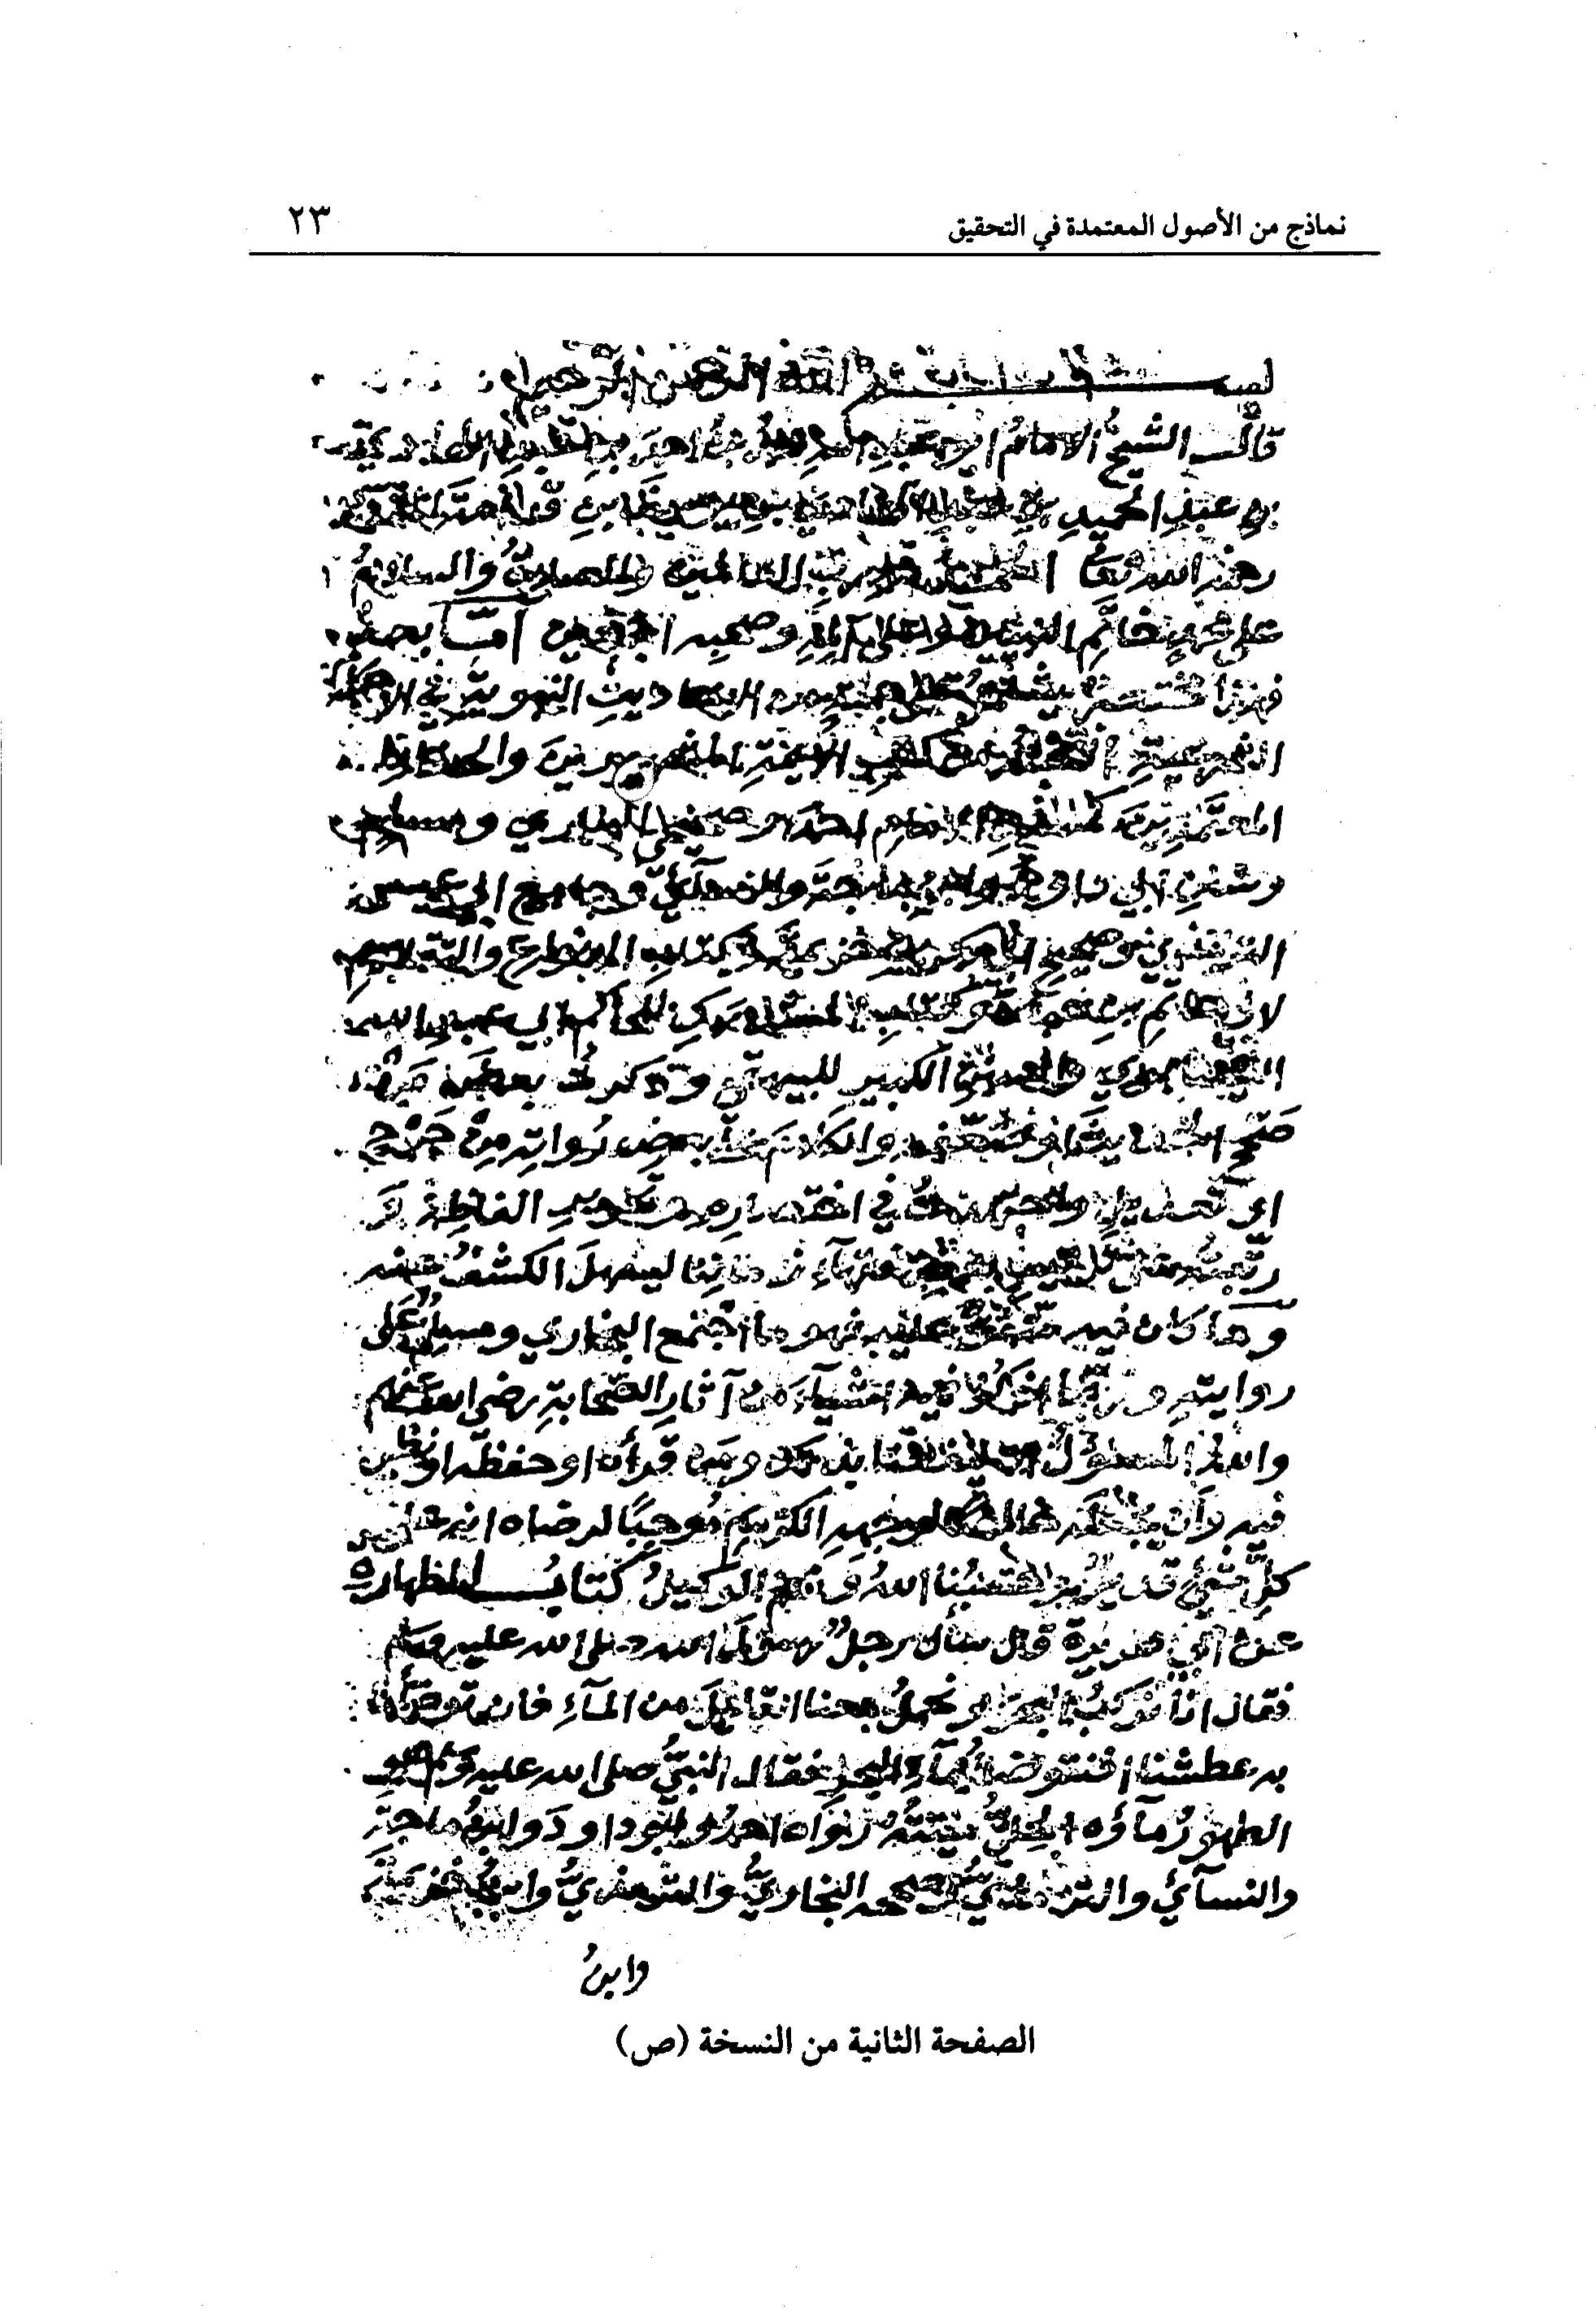 نماذج من الأصول المعتمدة في التحقيق ٢٣
بسم الله الرحمن الرحيم
قال الشيخ الامام احمد بن
بن عبد الحميد بن عبد الهادي بن يوسف بن
رحمه الله الحمد لله رب العالمين والصلاة والسلام
على خاتم النبيين وعلى آله وصحبه اجمعين اما بعد
فهذا مختصر يشتمل على جملة من الاحاديث النبوية في الاحكام
الشرعية من كتب الأئمة المشهورين والحفاظ
المعتمدين كمسند الامام احمد وصحيحي البخاري ومسلم
وسنن أبي داود وابن ماجة والنسآئي وجامع ابي عيسى
الترمذي وصحيح ابي بكر بن خزيمة وكتاب الانواع والتقاسيم
لابي حاتم بن حبان وكتاب المستدرك للحاكم ابي عبد الله
النيسابوري والسنن الكبير للبيهقي وذكرت بعض من
صحح الحديث او ضعفه والكلام على بعض رواته من جرح
او تعديل واجتهدت في اختصاره وتحرير الفاظه و
رتبته على ترتيب بعض فقهآء زماننا ليسهل الكشف عنه
وما كان فيه متفق عليه فهو ما اجتمع البخاري ومسلم على
روايته وربما اذكر فيه اشيآء من آثار الصحابة رضي الله عنهم
والله المسئول ان ينفعنا بذلك ومن قرأه او حفظه او نظر
فيه وأن يجعله خالصا لوجهه الكريم موجبا لرضاه انه على
كل شيئ قدير حسبنا الله ونعم الوكيل كتاب الطهارة
عن أبي هريرة قال سأل رجل رسول الله صلى الله عليه وسلم
فقال انا نركب البحر ونحمل معنا القليل من المآء فان توضأنا
به عطشنا افنتوضأ بمآء البحر فقال النبي صلى الله عليه وسلم هو
الطهور مآؤه الحل ميتته رواه احمد وابو داود وابن ماجة
والنسآئي والترمذي وصححه البخاري والترمذي وابن خزيمة
وابن
الصفحة الثانية من النسخة (ص)